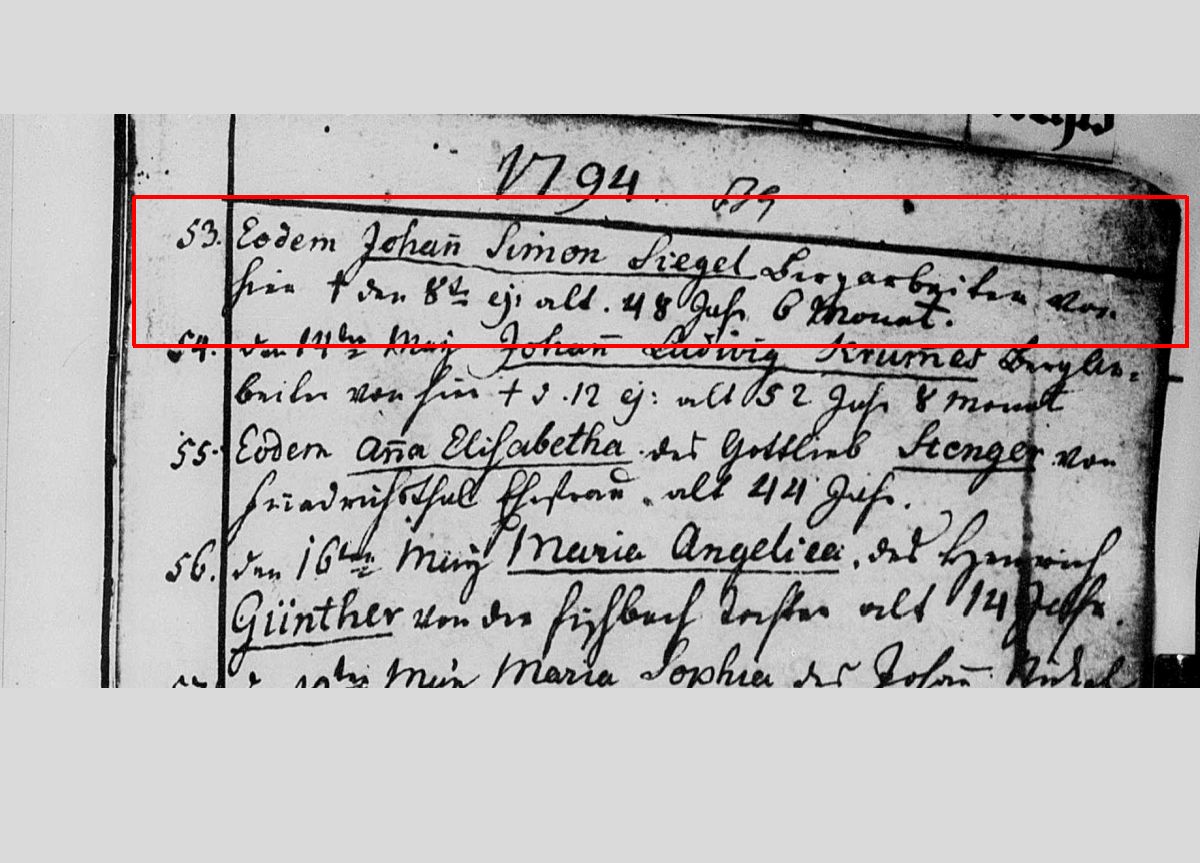 1794.
53. Eodem Johan̄ Simon Siegel Bergarbeiter von
hier † den 8ten ej: alt. 48 Jahr 6 Monat.
54. den 14ten May Johan̄ Ludwig Krum̄es Bergar=
beiter von hier † d. 12 ej: alt 52 Jahr 8 Monat
55. Eodem An̄a Elisabetha des Gottlieb Stenger von
Friedrichsthal Ehefrau. alt 44 Jahr.
56. den 16ten May Maria Angelica. des Henrich
Günther von der Fischbach Tochter alt 14 Jahr.
Maria Sophia des Johan̄ Nickel